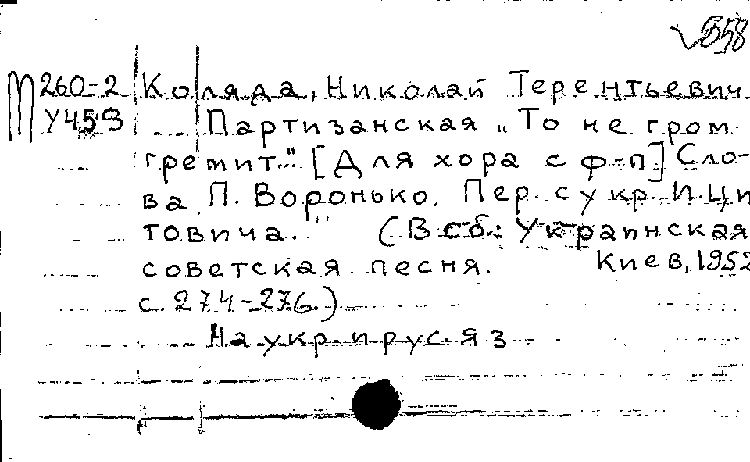 В58
М 260-2 Коляда, Николай Терентьевич
У453 Партизанская „То не гром
гремит." [Для хора с ф-п] Сло-
ва П. Воронько. Пер. с укр. И. Ци
товича. (В сб.: Украинская
советская песня. Киев, 1952
с. 274-276.)
На укр. и рус. яз